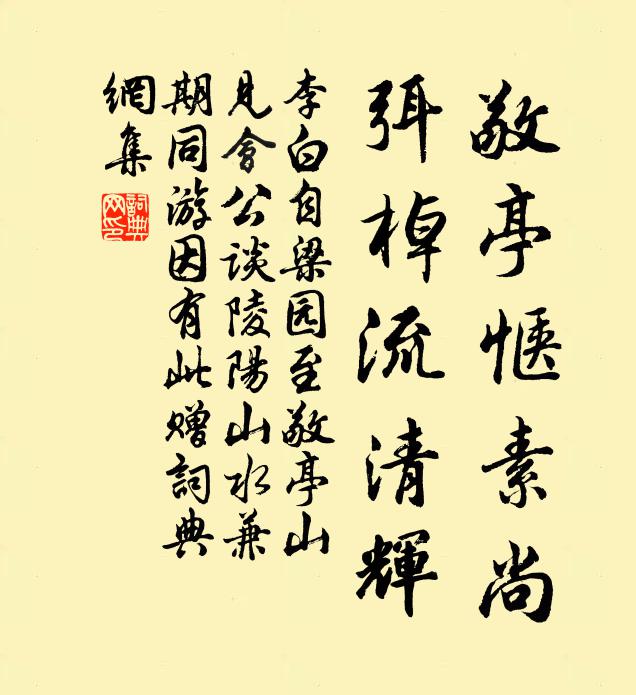 敬亭惬素尚
弭棹流清輝
李白自梁园至敬亭山
見會公談陵陽山水兼
期同游因有此贈詞典
網集
詞典
网印